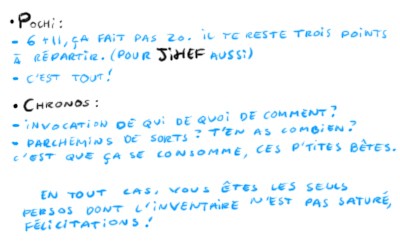 • POCHI :
- 6+11, ÇA FAIT PAS 20. IL TE RESTE TROIS POINTS
À RÉPARTIR. (POUR JIHEF AUSSI)
- C'EST TOUT !
• CHRONOS :
- INVOCATION DE QUI DE QUOI DE COMMENT ?
- PARCHEMINS DE SORTS ? T'EN AS COMBIEN ?
C'EST QUE ÇA SE CONSOMME, CES P'TITES BÊTES.
EN TOUT CAS, VOUS ÊTES LES SEULS
PERSOS DONT L'INVENTAIRE N'EST PAS SATURÉ,
FÉLICITATIONS !